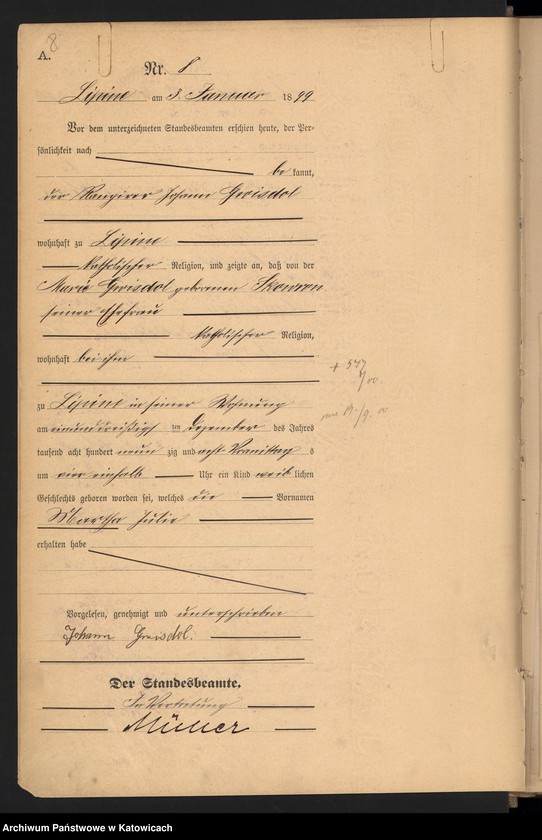 8
A.
Nr. 8
Lipine am 3. Januar 1899
Vor dem unterzeichneten Standesbeamten erschien heute, der Per-
sönlichkeit nach
be kannt,
der Rangirer Johann Gwisdol
wohnhaft zu Lipine
katholischer Religion, und zeigte an, daß von der
Marie Gwisdol geborenen Skowron
seiner Ehefrau
katholischer Religion,
wohnhaft bei ihm
zu Lipine in seiner Wohnung
am einunddreißigst ten Dezember des Jahres
tausend acht hundert neun zig und acht Vormittag s
um vier einhalb Uhr ein Kind weib lichen
Geschlechts geboren worden sei, welches die Vornamen
Martha Julie
erhalten habe
Vorgelesen, genehmigt und unterschrieben
Johann Gwisdol.
Der Standesbeamte.
In Vertretung
Müller
Archiwum Państwowe w Katowicach